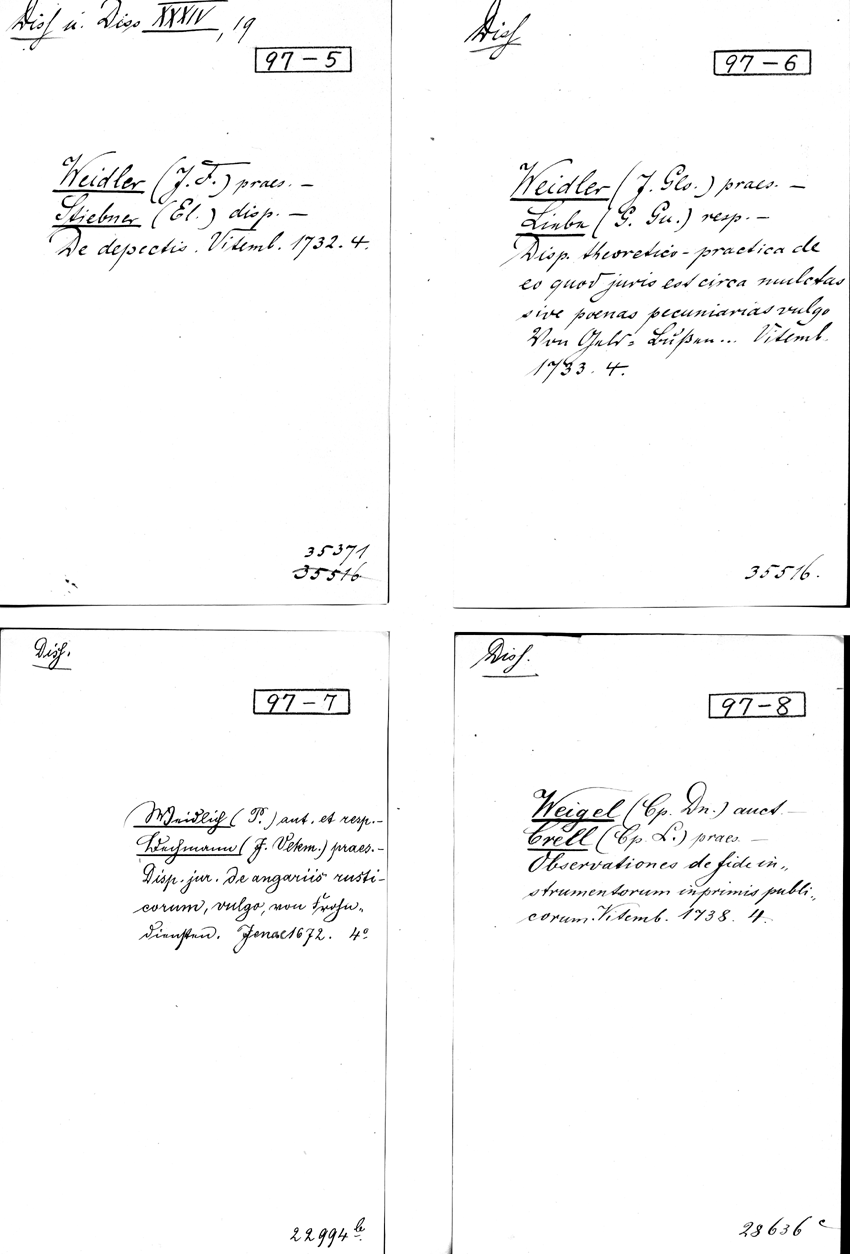 Diss u. Diss XXXIV, 19
97-5
Weidler (J. F.) praes. —
Stiebner (El.) disp. —
De depectis. Vitemb. 1732. 4.
35371
35516
Diss
97-6
Weidler (J. Glo.) praes. —
Liebe (G. Gu.) resp. —
Disp. theoretico-practica de
eo quod juris est circa mulctas
sive poenas pecuniarias vulgo
Von Geld= Bußen... Vitemb.
1733. 4.
35516.
Diss.
97-7
Weidlich (P.) aut. et resp.-
Bechmann (J. Vekm.) praes.-
Disp. jur. de angariis rusti-
corum, vulgo, von Frohn„
diensten. Jenae 1672. 4°
22994 b.
Diss.
97-8
Weigel (Cp. Dn.) auct —
Crell (Cp. L.) praes. —
Observationes de fide in„
strumentorum inprimis publi„
corum. Vitemb. 1738. 4.
28636 c